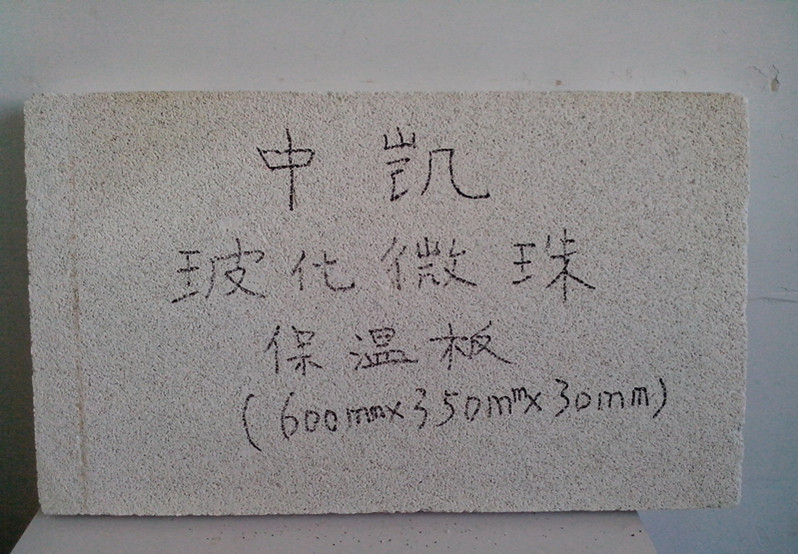 中凯
玻化微珠
保温板
(600mmx350mmx30mm)